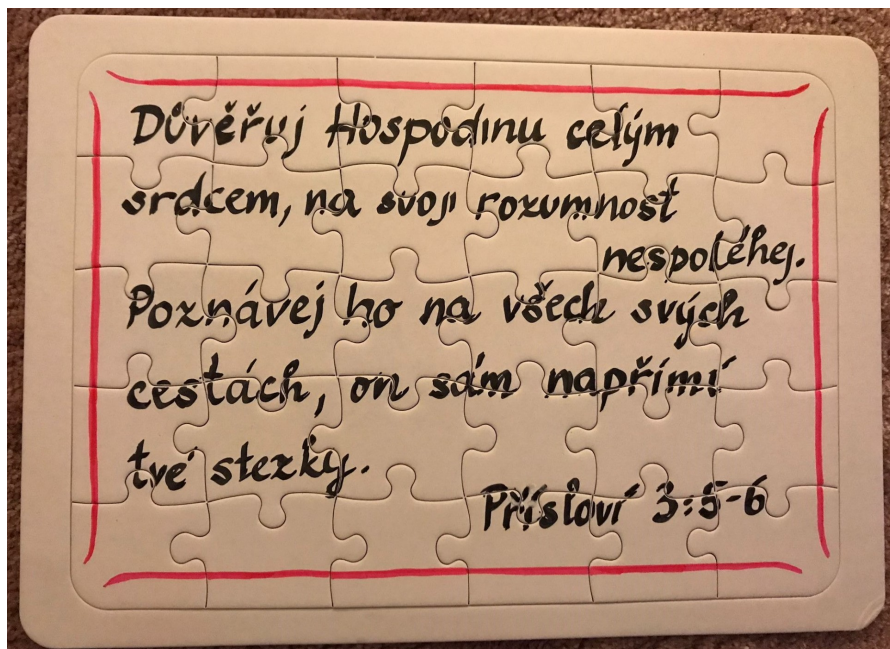 Důvěřuj Hospodinu celým
srdcem, na svoji rozumnost
nespoléhej.
Poznávej ho na všech svých
cestách, on sám napřímí
tvé stezky.
Přísloví 3:5-6